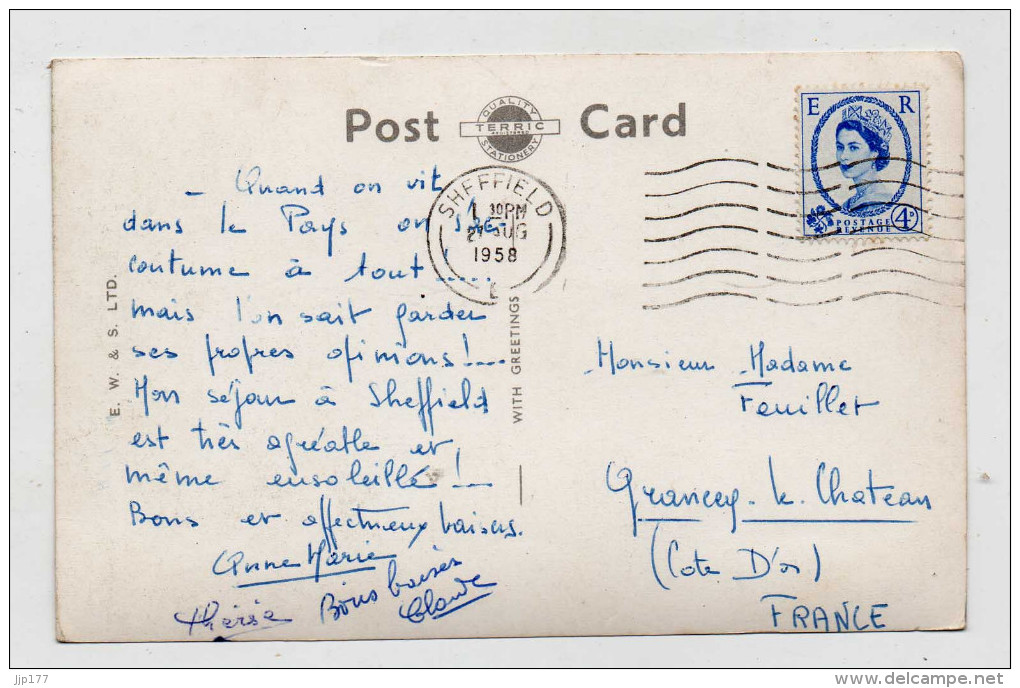 Post Card
QUALITY
TERRIC
REGISTERED
STATIONERY
E R
POSTAGE
REVENUE
4D
SHEFFIELD
1 30 PM
27 AUG
1958
E. W. & S. LTD.
WITH GREETINGS
– Quand on vit
dans le Pays on s'ac-
coutume à tout .....
mais l'on sait garder
ses propres opinions !...
Mon séjour à Sheffield
est très agréable et
même ensoleillé ! _
Bons et affectueux baisers.
Anne Marie
Bons baisers
Claude
Monsieur - Madame
Feuillet
Grancey-le-Chateau
(Cote D'or)
FRANCE
jjp177
delcampe.net